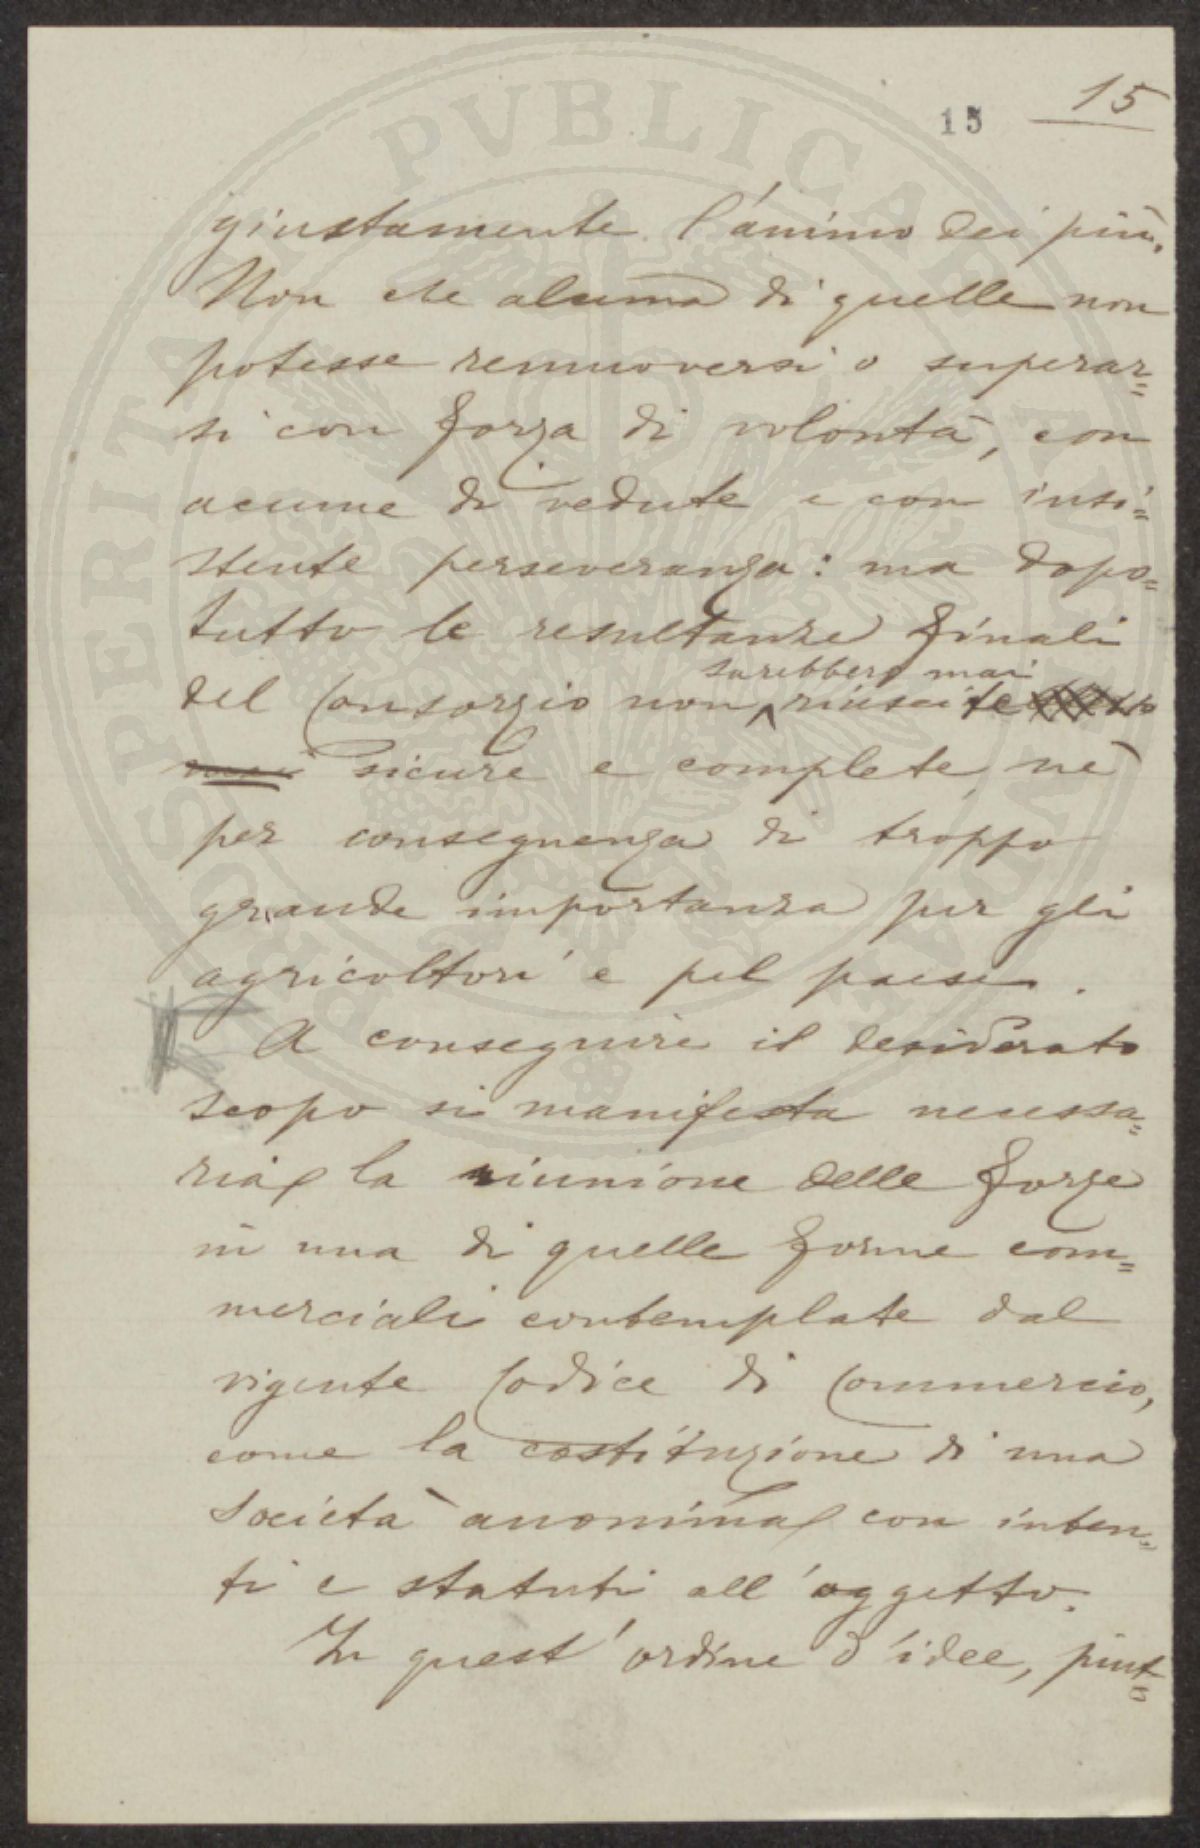 15 15
giustamente l'animo dei più.
Non che alcuna di quelle non
potesse remuoversi o superar=
si con forza di volontà, con
acume di vedute e con insi=
stente perseveranza: ma dopo=
tutto le resultanze finali
sarebbero mai
del Consorzio non riuscite
sicure e complete, nè
per conseguenza di troppo
grande importanza per gli
agricoltori e pel paese.
A conseguire il desiderato
scopo si manifesta necessa=
ria la riunione delle forze
in una di quelle forme com=
merciali contemplate dal
vigente Codice di Commercio,
come la costituzione di una
Società anonima con inten=
ti e statuti all'oggetto.
In quest'ordine d'idee, piut=